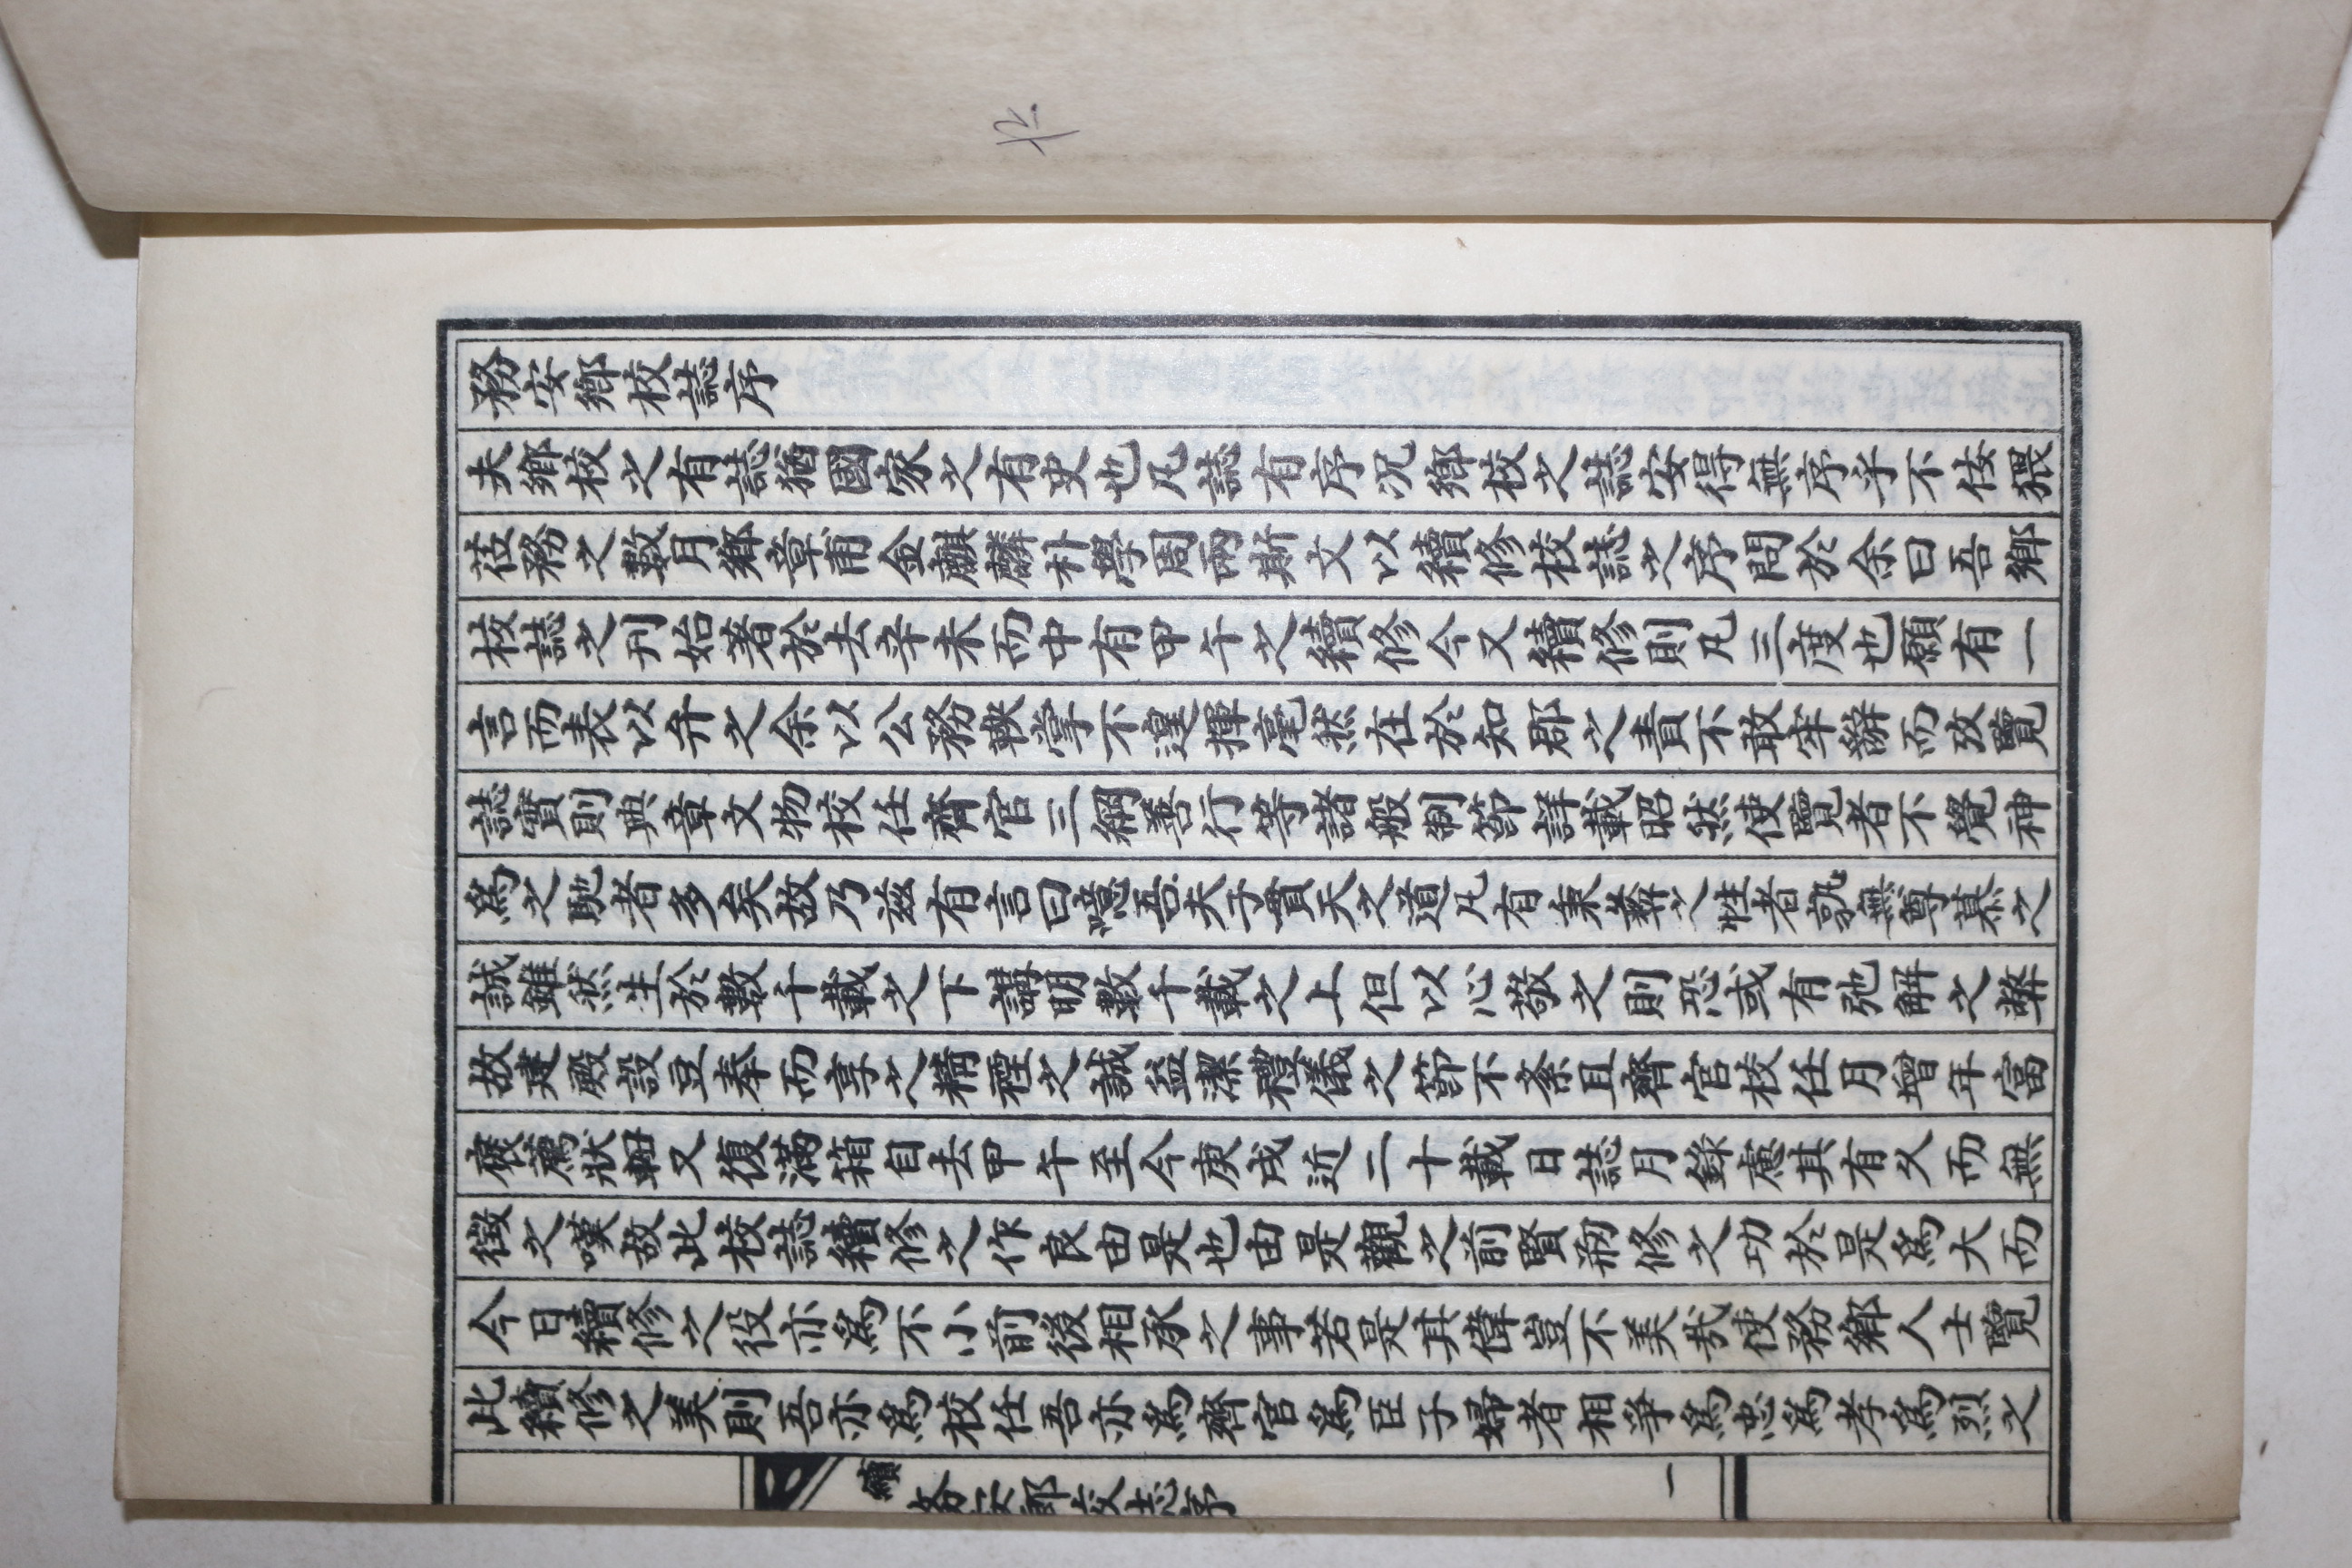 務安鄕校誌序
夫鄕校之有誌猶國家之有史也凡誌有序况鄕校之誌安得無序乎不佞猥
莅務之數月鄕章甫金麒麟朴學周兩斯文以續修校誌之序問於余曰吾鄕
校誌之刊始著於去辛未而中有甲午之續修今又續修則凡三度也願有一
言而表以弁之余以公務鞅掌不遑揮毫然在於知郡之責不敢牢辭而攷覽
誌實則典章文物校任齊官三綱善行等諸般制節詳載昭然使覽者不覺神
爲之馳者多矣故乃玆有言曰噫吾夫子貫天之道凡有秉彝之性者孰無尊慕之
誠雖然生於數千載之下講明數千載之上但以心敬之則恐或有弛解之弊
故建殿設豆奉而享之精禋之誠益潔禮儀之節不紊且齊官校任月增年富
褒薦狀軸又復滿箱自去甲午至今庚戌近二十載日誌月錄慮其有久而無
徵之嘆故此校誌續修之作良由是也由是觀之前賢刱修之功於是爲大而
今日續修之役亦爲不小前後相承之事若是其偉豈不美哉使務鄕人士覽
此續修之美則吾亦爲校任吾亦爲齊官爲臣子婦者相爭爲忠爲孝爲烈之
續務安鄕校誌序
一